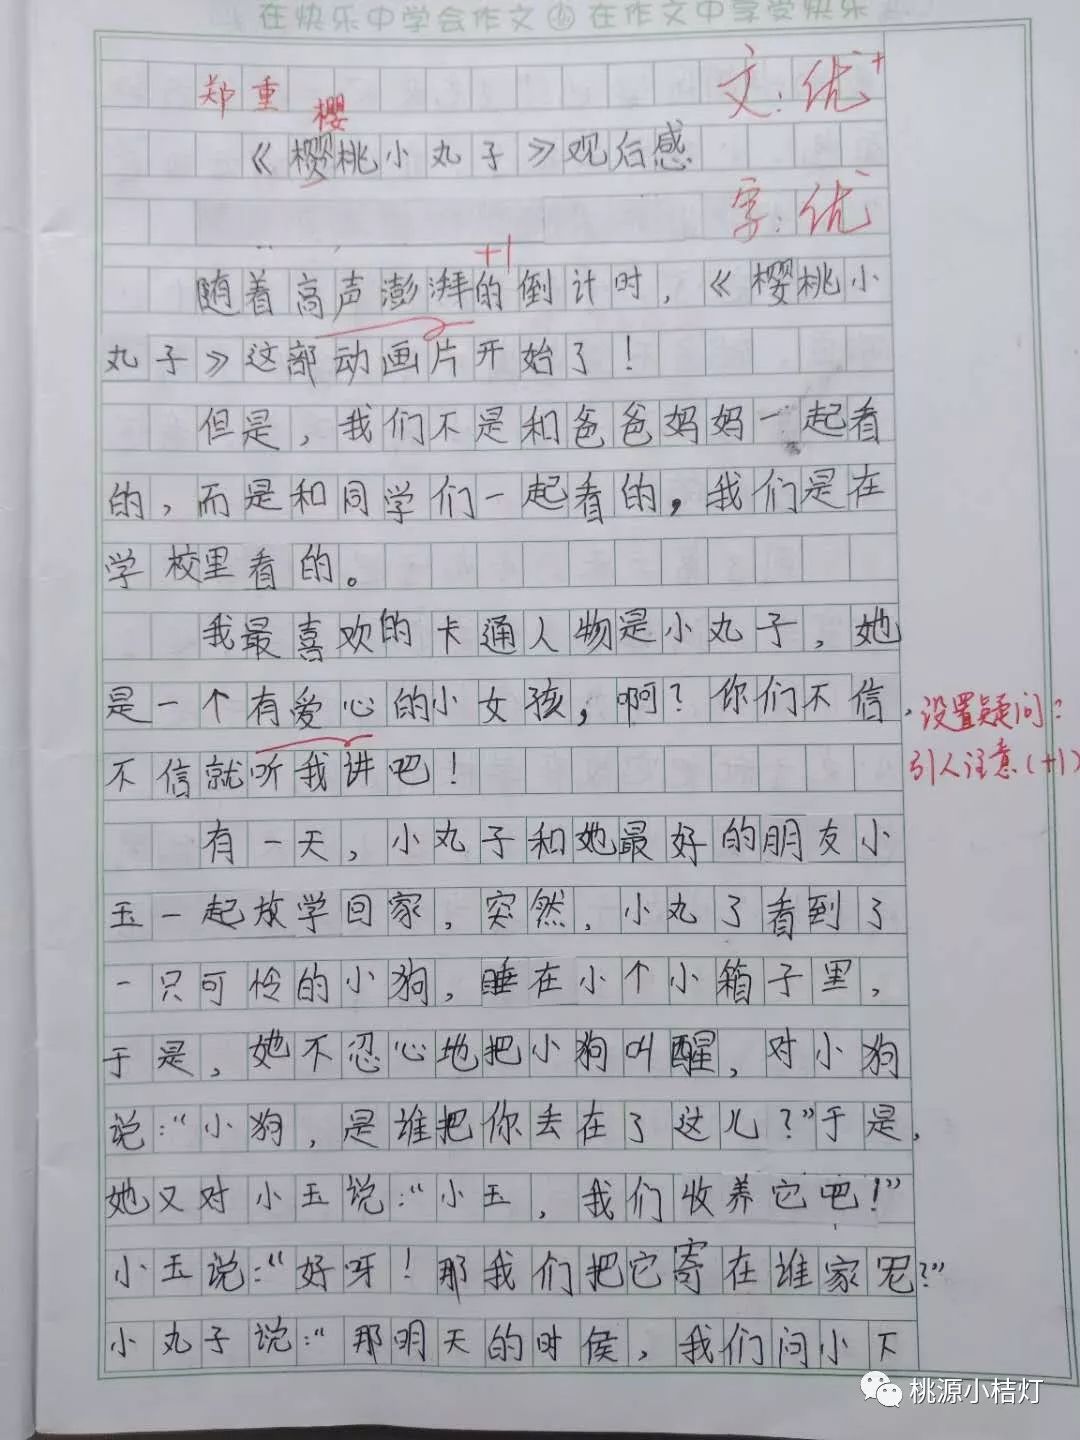 在快乐中学会作文 在作文中享受快乐
郑重
樱
文:优+
《樱桃小丸子》观后感
字:优
+1
随着高声澎湃的倒计时,《樱桃小
丸子》这部动画片开始了!
但是,我们不是和爸爸妈妈一起看
的,而是和同学们一起看的,我们是在
学校里看的。
我最喜欢的卡通人物是小丸子,她
是一个有爱心的小女孩,啊?你们不信,
设置疑问:
不信就听我讲吧!
引人注意(+1)
有一天,小丸子和她最好的朋友小
玉一起放学回家,突然,小丸了看到了
一只可怜的小狗,睡在小个小箱子里,
于是,她不忍心地把小狗叫醒,对小狗
说:“小狗,是谁把你丢在了这儿?”于是,
她又对小玉说:“小玉,我们收养它吧!”
小玉说:“好呀!那我们把它寄在谁家呢?”
小丸子说:“那明天的时侯,我们问小下
桃源小桔灯